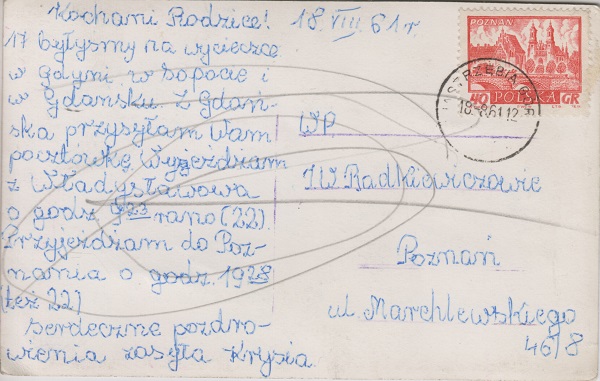 Kochani Rodzice! 18 VIII 61 r
17 byłyśmy na wycieczce
w Gdyni w Sopocie i
w Gdańsku. Z Gdań-
ska przysyłam Wam
pocztówkę. Wyjeżdżam
z Władysławowa
o godz 9 23 rano (22).
Przyjeżdżam do Poz-
nania o godz. 19 28
(też 22)
serdeczne pozdro-
wienia zasyła Krysia.
POZNAŃ
40 POLSKA GR
JASTRZĘBIA GÓRA
18.8.61.12
WP
J.W Radkiewiczowie
Poznań
ul Marchlewskiego
46/8